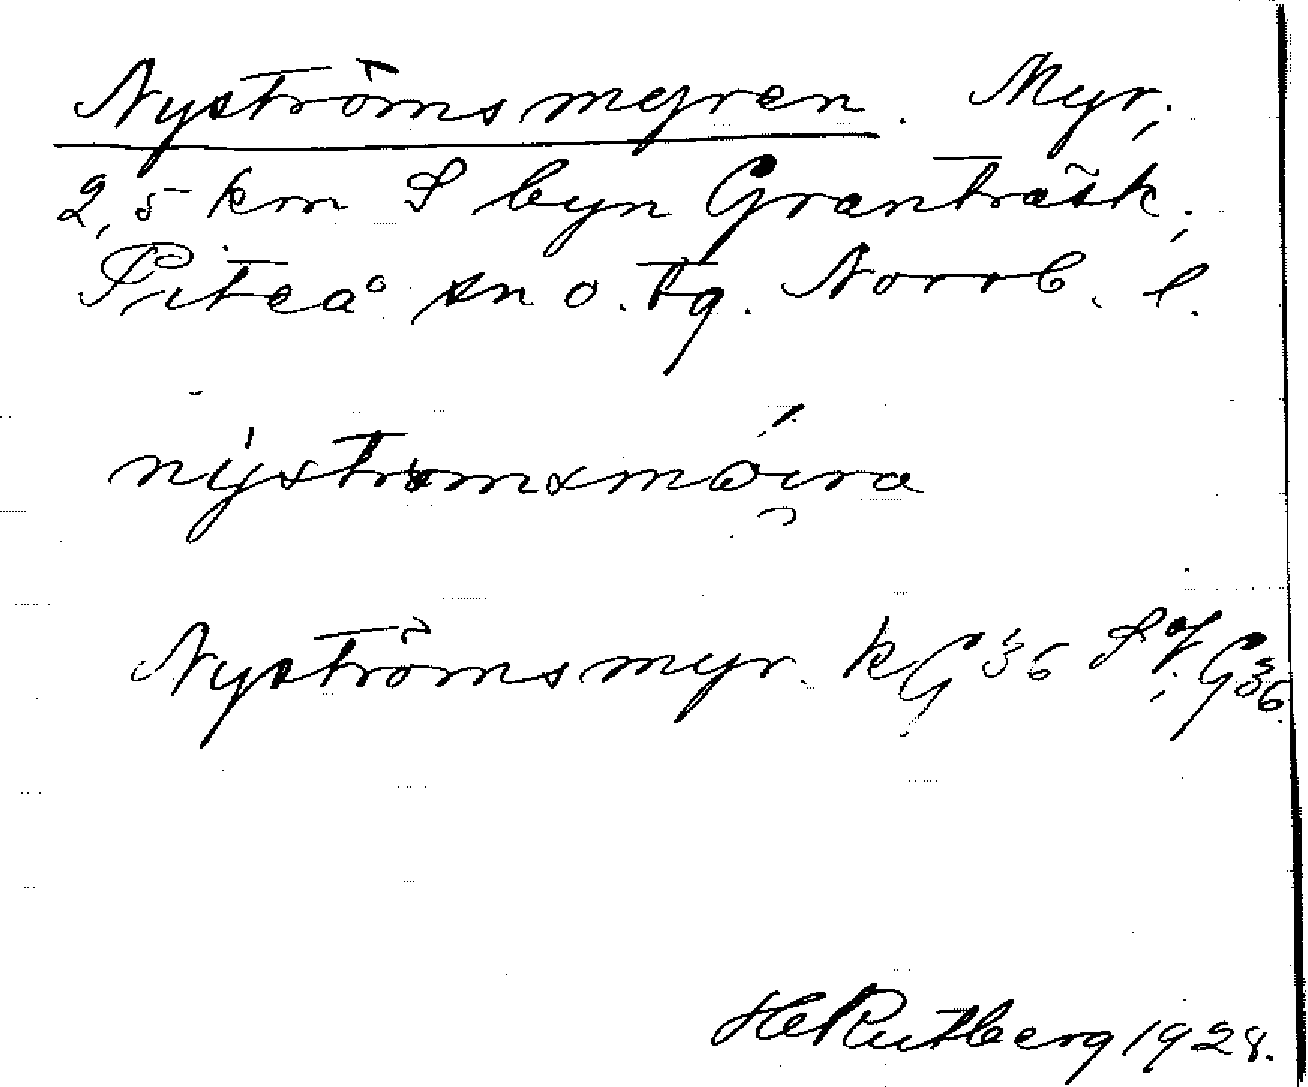 Nyströmsmyren. Myr;
2,5 km S byn Granträsk;
Piteå sn o. tg. Norrb. l.
Nyströmsmyr. kG36
HRutberg 1928.